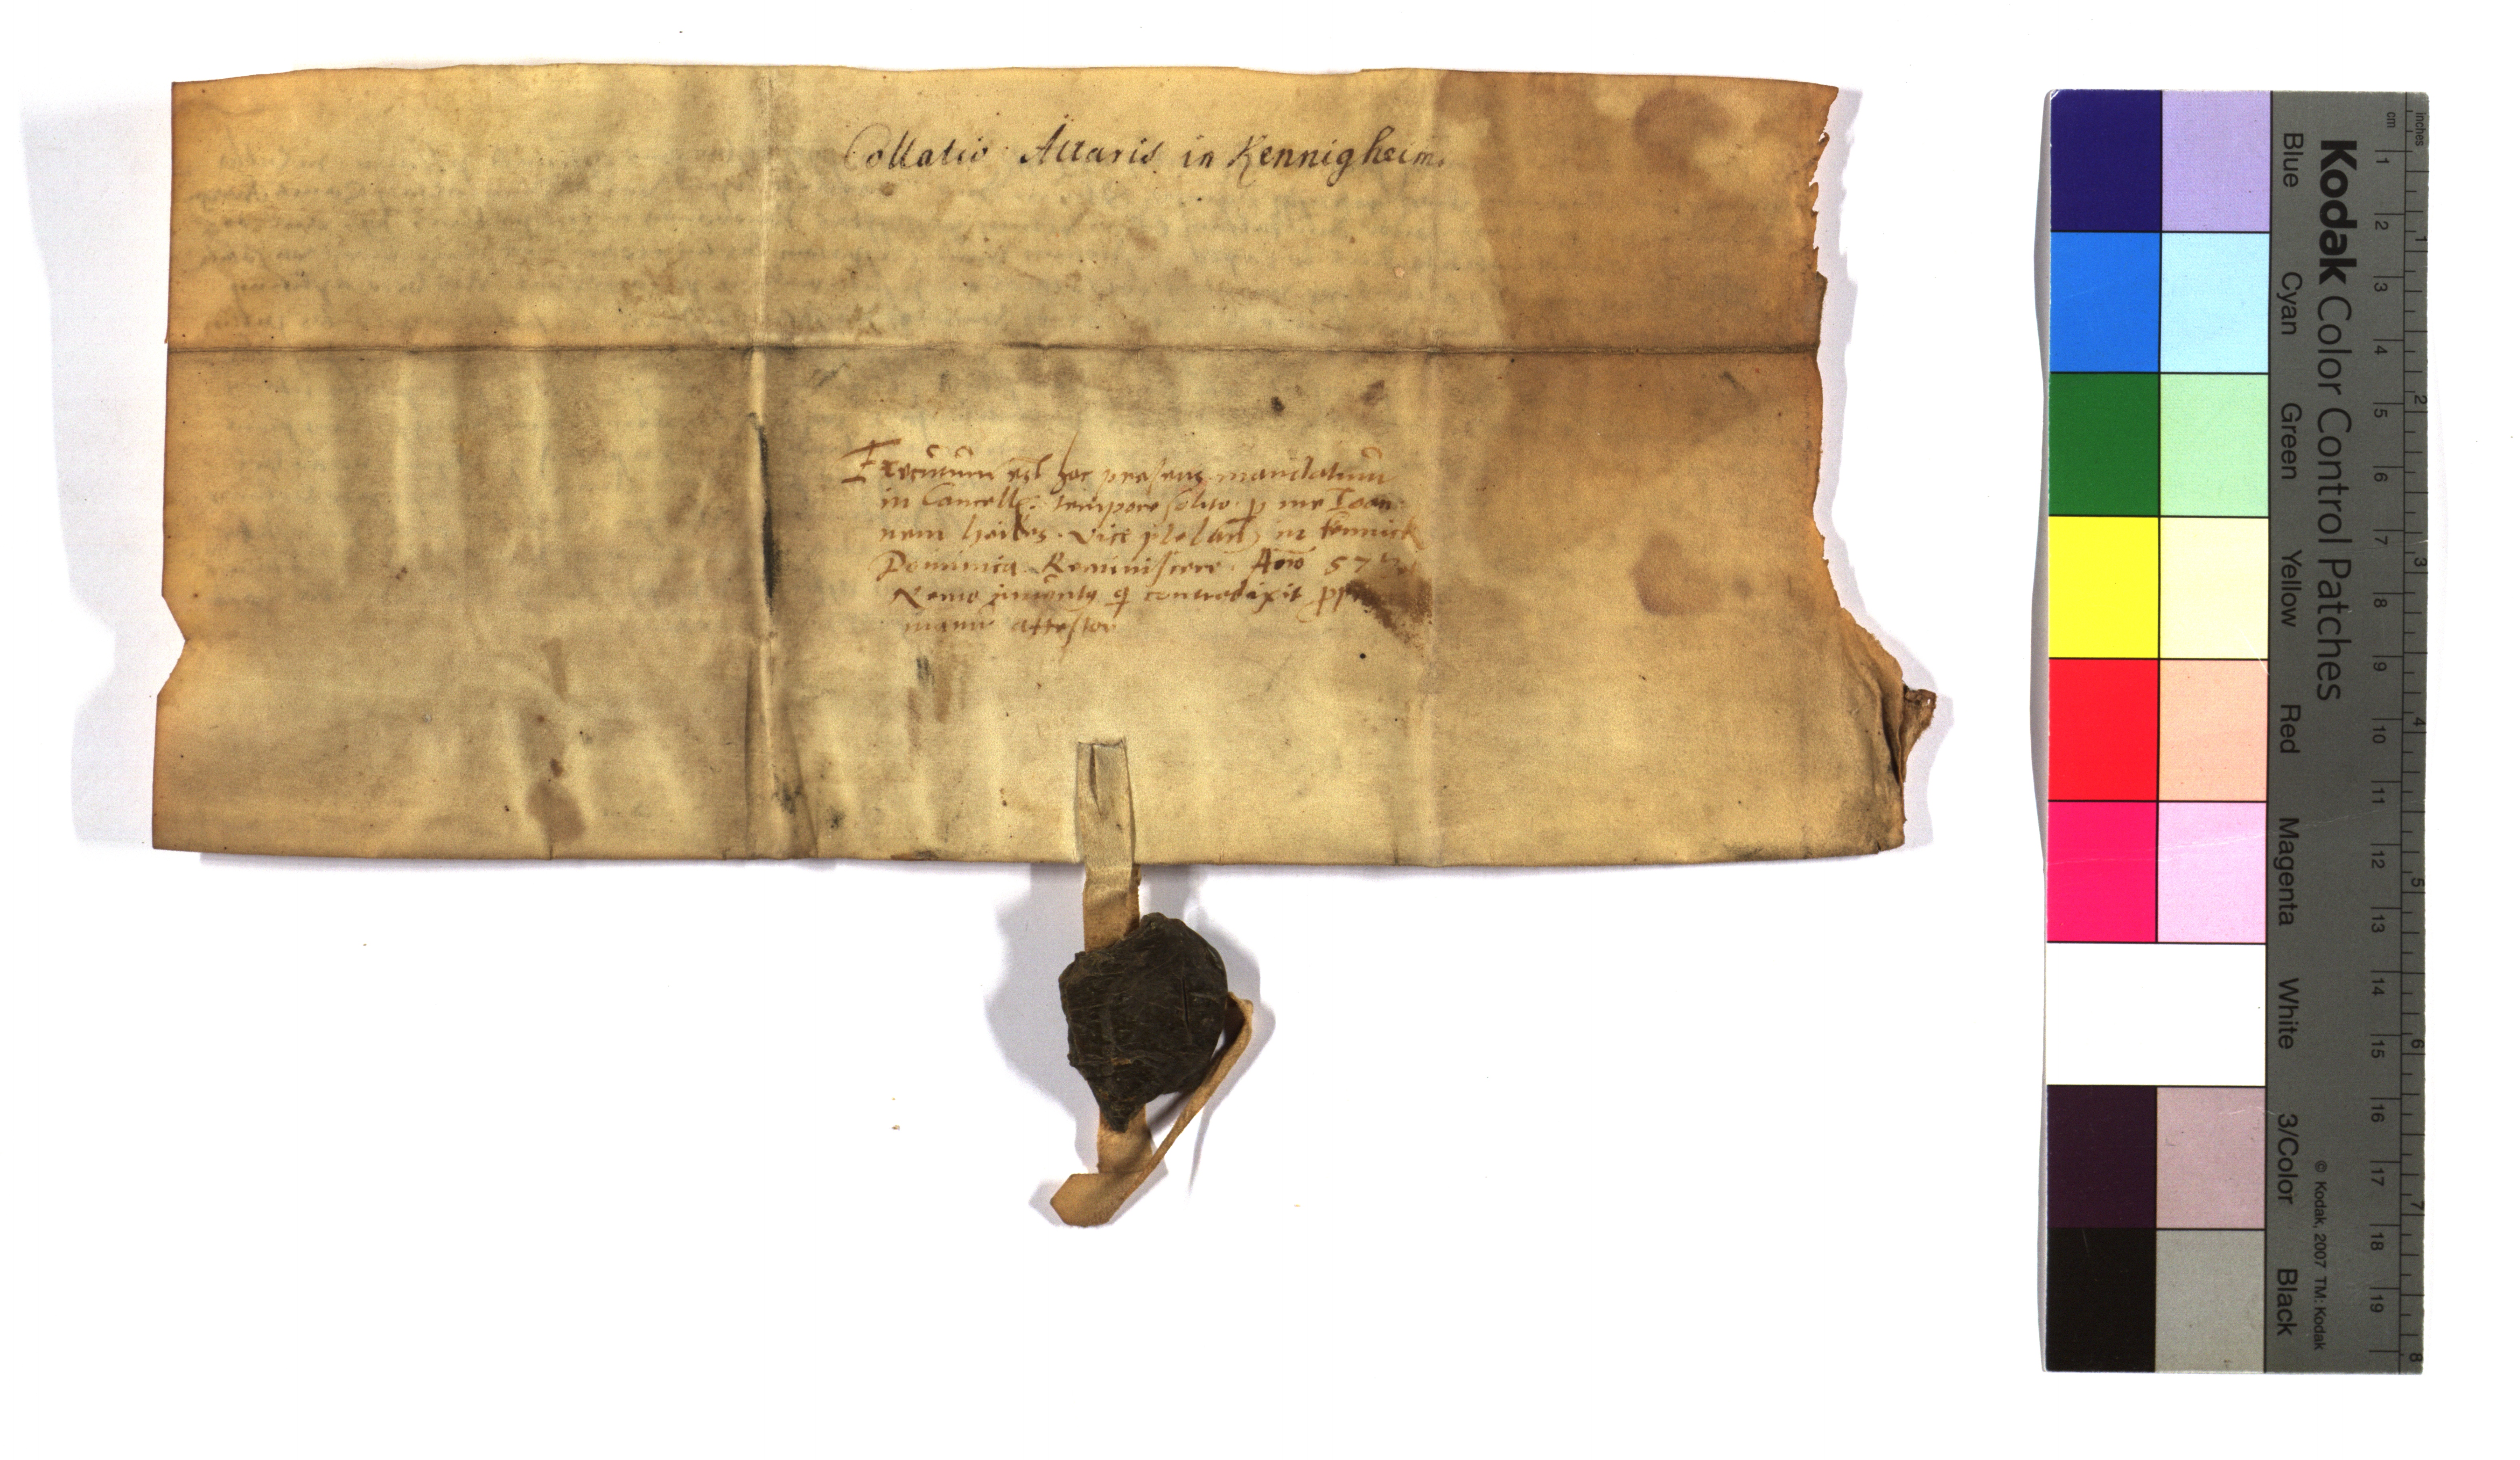 Collatio Altaris in Kennigheim.
Executum est hoc presens mandatum
in Cancell: tempore solito p me Joan
nem
Dominica Reminiscere Anno 57
Nemo inventus q contradixit
manu attestor
Kodak Color Control Patches
© Kodak, 2007 TM: Kodak
Blue
Cyan
Green
Yellow
Red
Magenta
White
3/Color
Black
cm
1
2
3
4
5
6
7
8
9
10
11
12
13
14
15
16
17
18
19
inches
1
2
3
4
5
6
7
8